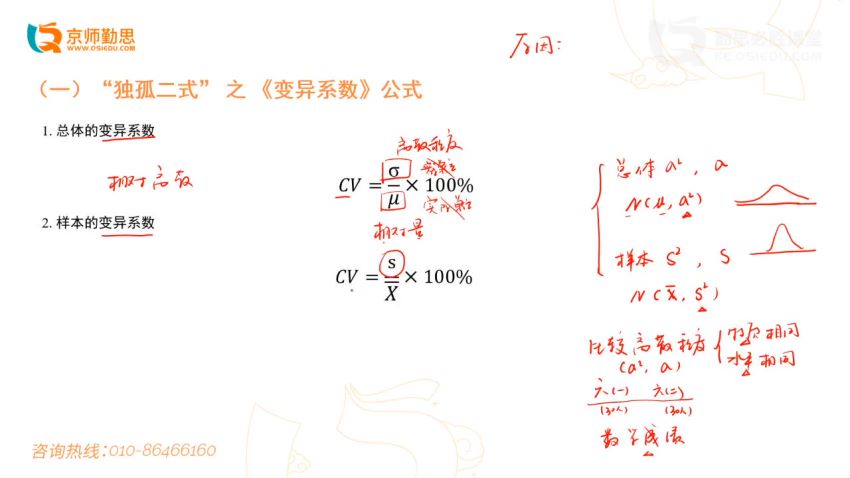 京师勤思
WWW.QSIEDU.COM
原因:
勤思必胜课堂
（一）“独孤二式” 之 《变异系数》公式
1. 总体的变异系数
相对离散
离散程度
CV = σ/μ × 100%
实际单位
实际单位
相对量
2. 样本的变异系数
CV = s/X̄ × 100%
总体 σ², σ
N(μ, σ²)
样本 S², S
N(X̄, S²)
比较离散程度
(σ², σ)
性质相同
水平相同
六(一) 六(二)
(30人) (30人)
数学成绩
咨询热线：010-86466160